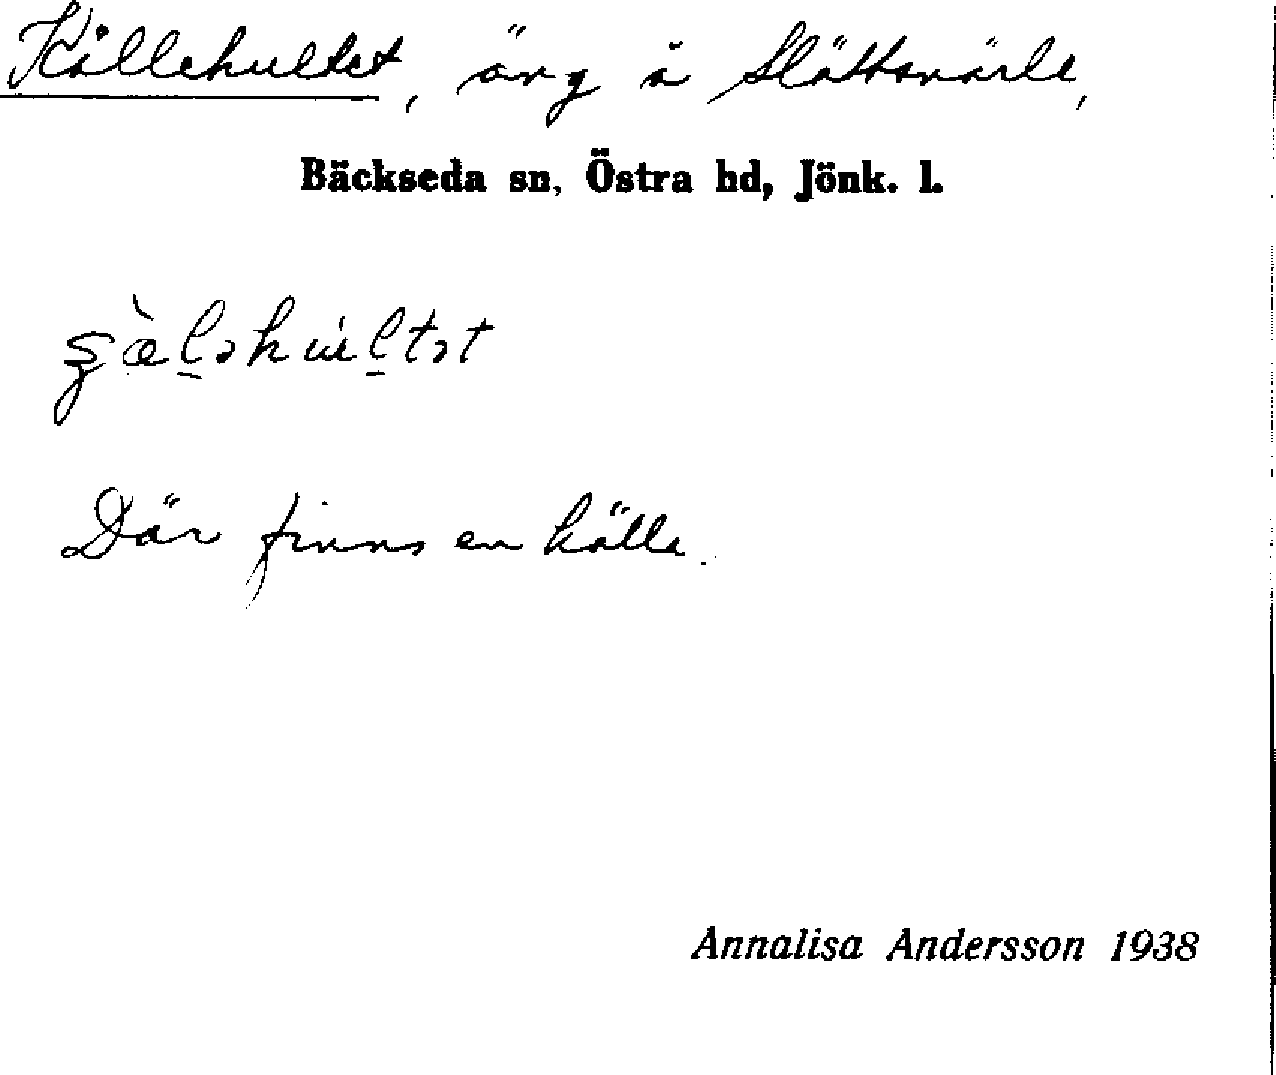 Källehultet, äng å Slättsnärle,
Bäckseda sn, Östra hd, Jönk. l.
Där finns en källa.
Annalisa Andersson 1938